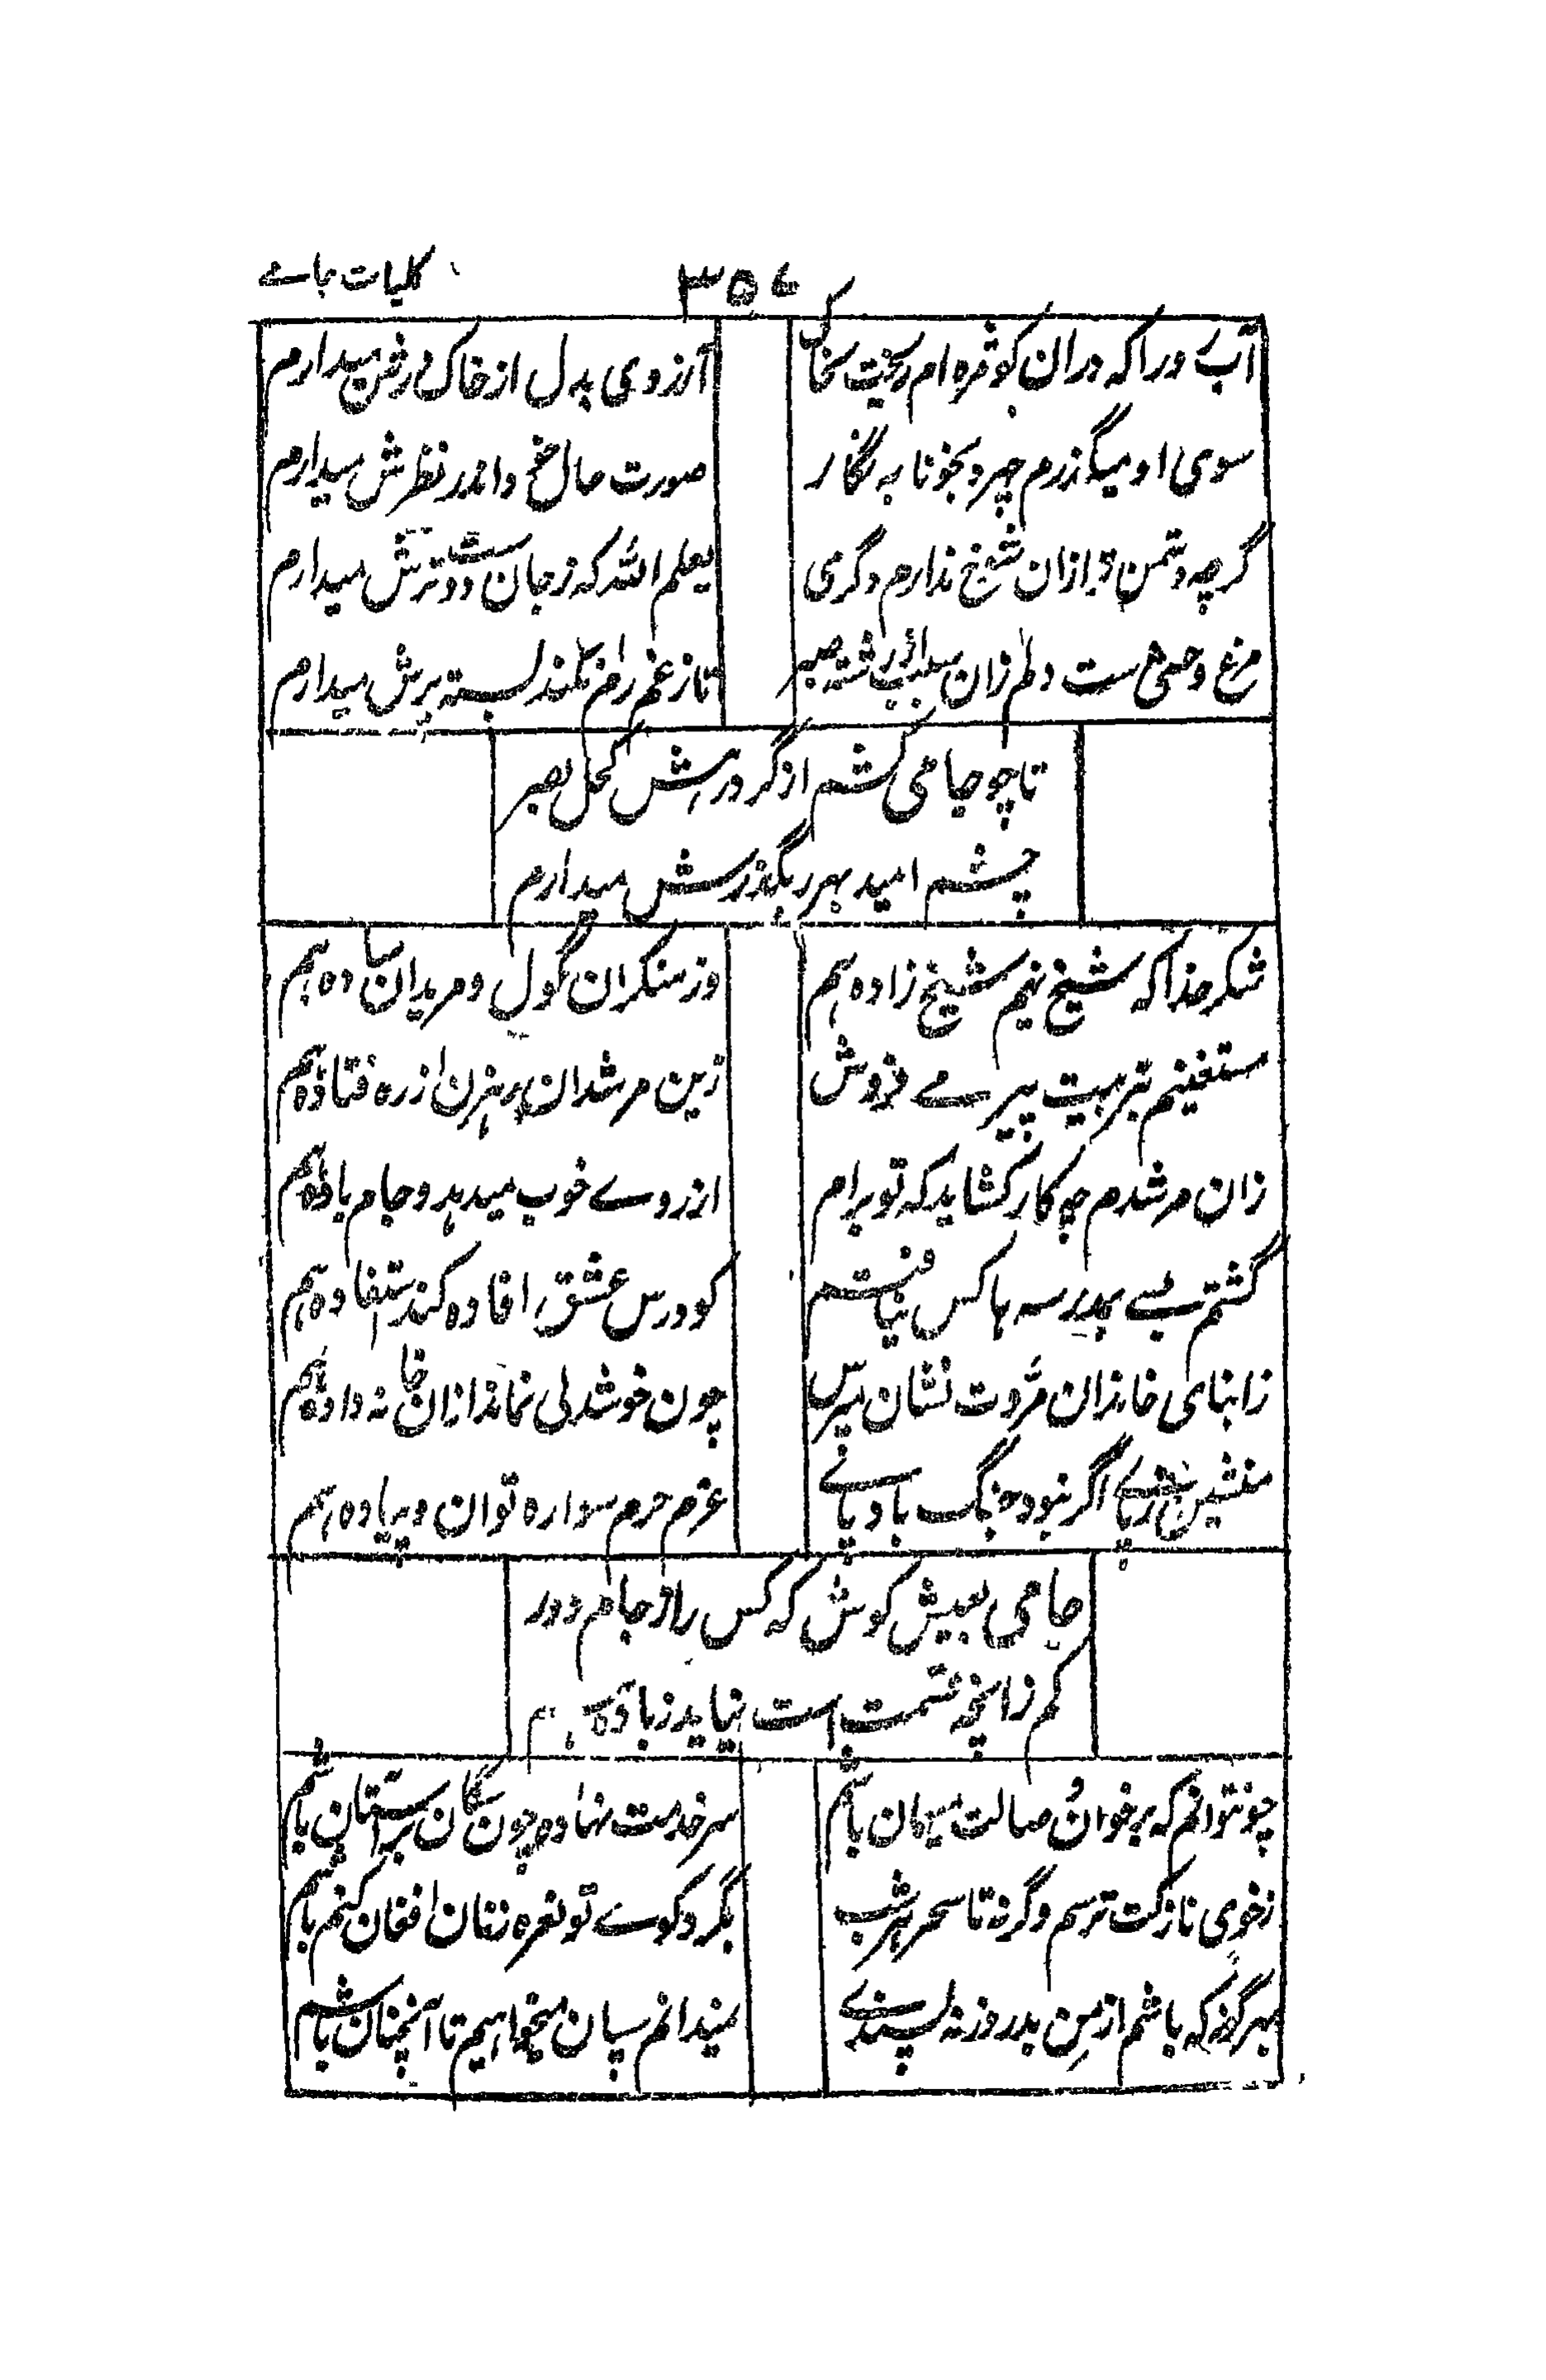 کلیات جامے
۳۵۶
آبے ورا که دران کو مژه ام ریخت بخاک
آرزوی بدل از خاک درش میدارم
سوی او میگذرم چهره بخونابه نگار
صورت حال خود اندر نظرش میدارم
گرچه دشمن تر ازان شوخ ندارم دگری
یعلم الله که ز جان دوست ترش میدارم
مرغ وحشی ست دلم زان سبب از رشته صبر
تا ز غم رم نکند بسته پرش میدارم
تا چو جامی کشم از گرد رهش کحل بصر
چشم امید بهر رهگذرش میدارم
شکر خدا که شیخ نیم شیخ زاده هم
وز منکران گول و مریدان ساده هم
مستغنیم بتربیت پیر مے فروش
زین مرشدان رهزن از ره فتاده هم
زان مرشدم چه کار کشاید که توبه ام
از روے خوب میدهد و جام باده هم
گشتم بسے بمدرسه ها کس نیافتم
کو درس عشق را افاده کند استفاده هم
ز ابنای خاندان مروت نشان مپرس
چون خوشدلی نماند ازان خانواده هم
منشین ز پاے اگر نبود خنگ باد پاے
عزم حرم سواره توان و پیاده هم
جامی بعیش کوش که کس را ز جام دور
کم زانچه قسمت است نیاید زیاده هم
چو نتوانم که بر خوان وصالت میهمان باشم
سر خدمت نهاده چون سگان بر آستان باشم
ز خوی نازکت ترسم وگرنه تا سحر هر شب
بگرد کوے تو نعره زنان افغان کنم باشم
بهر گونه که باشم از من بدروز نه پسندے
نمیدانم سپان میخواهیم تا آنچنان باشم